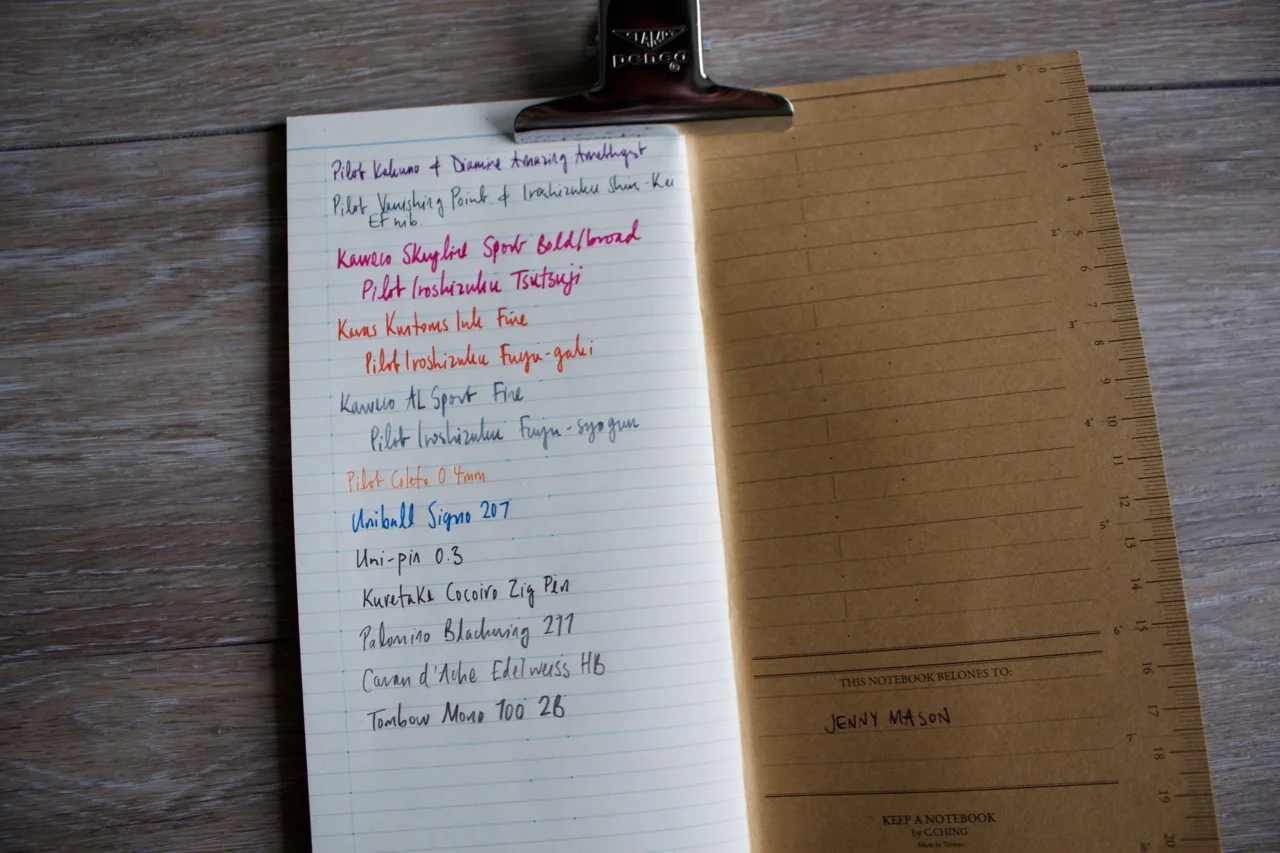 STAMP
penco®
Pilot Kakuno & Diamine Amazing Amethyst
Pilot Vanishing Point & Iroshizuku Shin-Kai
EF nib.
Kaweco Skyline Sport Bold/broad
Pilot Iroshizuku Tsutsuji
Karas Kustoms Ink Fine
Pilot Iroshizuku Fuyu-gaki
Kaweco AL Sport Fine
Pilot Iroshizuku Fuyu-syogun
Pilot Coleto 0.4mm
Uniball Signo 207
Uni-pin 0.3
Kuretake Cocoiro Zig Pen
Palomino Blackwing 211
Caran d'Ache Edelweiss HB
Tombow Mono 100 2B
0
1"
2
3
4
2"
5
6
7
3"
8
9
4"
10
11
12
5"
13
14
6"
15
16
THIS NOTEBOOK BELONGS TO:
JENNY MASON
17
7"
18
19
KEEP A NOTEBOOK
by C.CHING
Made in Taiwan
8"
20